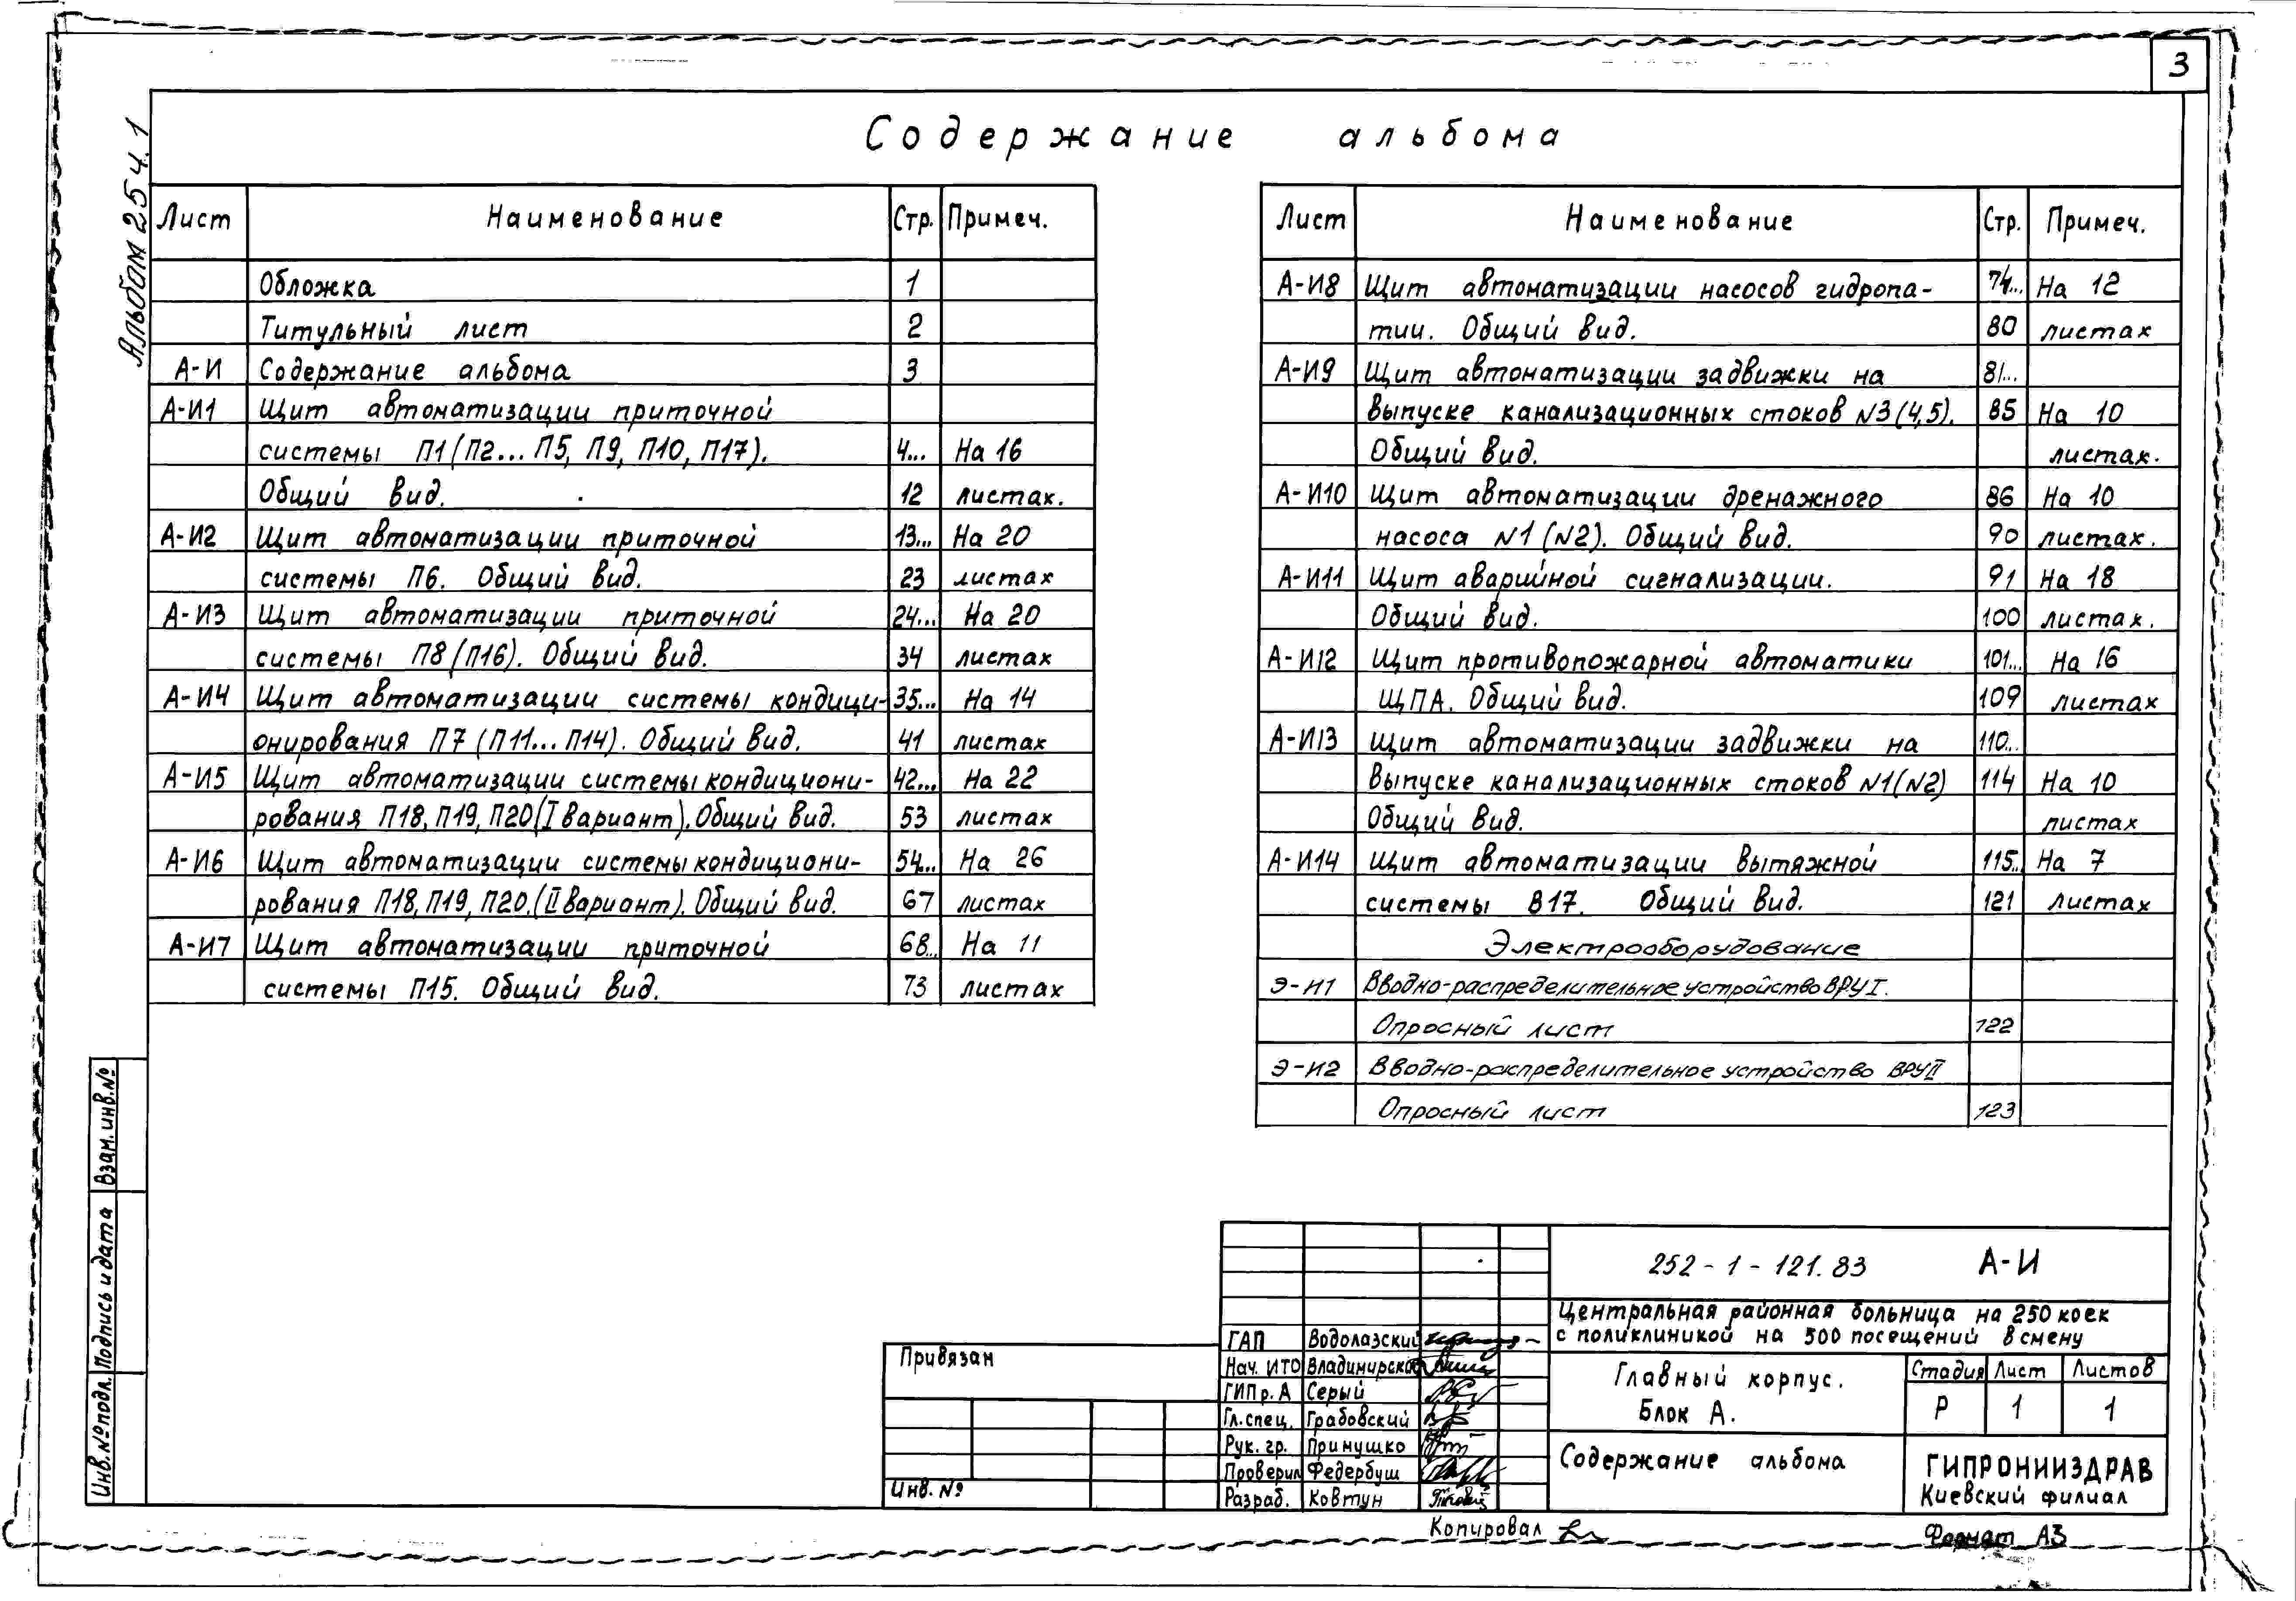 3
Содержание альбома
Альбом 25 ч. 1
Лист Наименование Стр. Примеч.
Обложка 1
Титульный лист 2
А-И Содержание альбома 3
А-И1 Щит автоматизации приточной
системы П1 (П2... П5, П9, П10, П17). 4... На 16
Общий вид. 12 листах.
А-И2 Щит автоматизации приточной 13... На 20
системы П6. Общий вид. 23 листах
А-И3 Щит автоматизации приточной 24... На 20
системы П8 (П16). Общий вид. 34 листах
А-И4 Щит автоматизации системы кондици- 35... На 14
онирования П7 (П11... П14). Общий вид. 41 листах
А-И5 Щит автоматизации системы кондициони- 42... На 22
рования П18, П19, П20 (I вариант). Общий вид. 53 листах
А-И6 Щит автоматизации системы кондициони- 54... На 26
рования П18, П19, П20. (II вариант). Общий вид. 67 листах
А-И7 Щит автоматизации приточной 68... На 11
системы П15. Общий вид. 73 листах
Лист Наименование Стр. Примеч.
А-И8 Щит автоматизации насосов гидропа- 74... На 12
тии. Общий вид. 80 листах
А-И9 Щит автоматизации задвижки на 81...
выпуске канализационных стоков N3 (4,5). 85 На 10
Общий вид. листах.
А-И10 Щит автоматизации дренажного 86 На 10
насоса N1 (N2). Общий вид. 90 листах.
А-И11 Щит аварийной сигнализации. 91 На 18
Общий вид. 100 листах.
А-И12 Щит противопожарной автоматики 101... На 16
ЩПА. Общий вид. 109 листах
А-И13 Щит автоматизации задвижки на 110...
выпуске канализационных стоков N1 (N2) 114 На 10
Общий вид. листах
А-И14 Щит автоматизации вытяжной 115.. На 7
системы В17. Общий вид. 121 листах
Электрооборудование
Э-И1 Вводно-распределительное устройство ВРУ I.
Опросный лист 122
Э-И2 Вводно-распределительное устройство ВРУ II
Опросный лист 123
Взам. инв. №
Подпись и дата
Инв. № подл.
252-1-121.83 А-И
Центральная районная больница на 250 коек
с поликлиникой на 500 посещений в смену
Главный корпус.
Блок А.
Стадия Лист Листов
Р 1 1
Содержание альбома
ГИПРОНИИЗДРАВ
Киевский филиал
ГАП Водолазский
Нач. ИТО Владимирская
ГИПр. А Серый
Гл. спец. Грабовский
Рук. гр. Примушко
Проверил Федербуш
Разраб. Ковтун
Привязан
Инв. №
Копировал
Формат А3